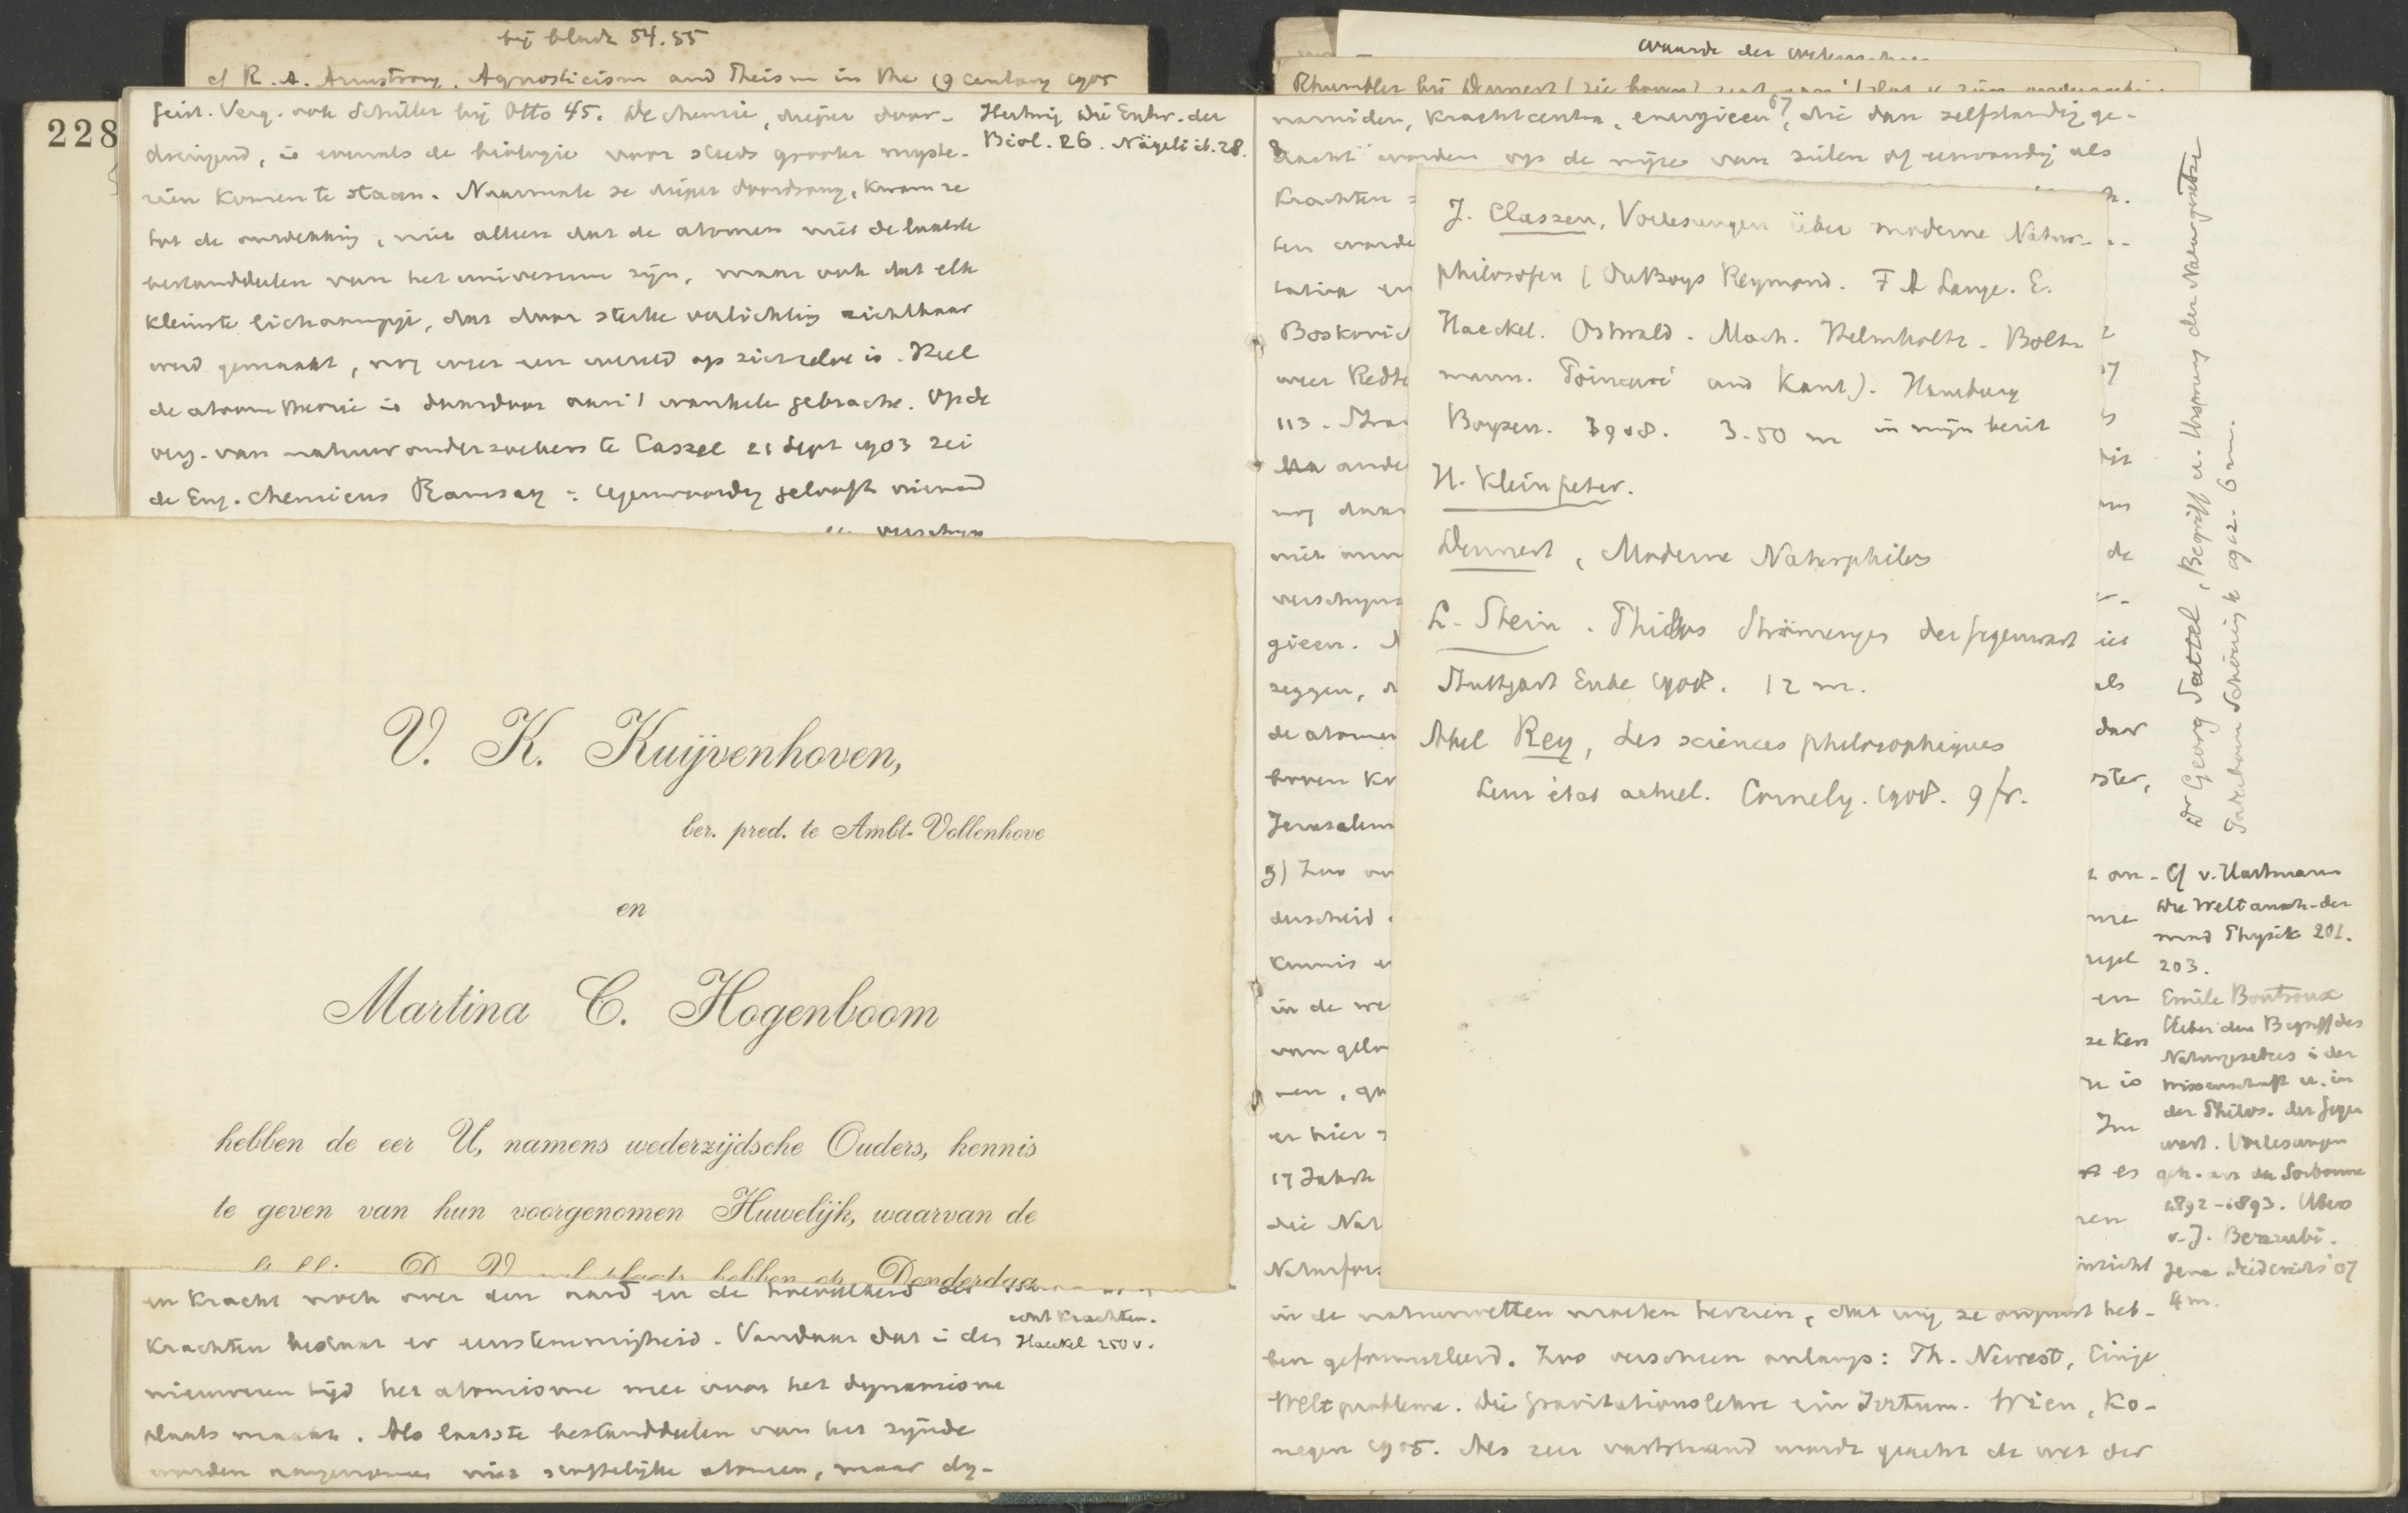 bij bladz 54.55
cf R. A. Armstrong. Agnosticism and Theism in the 19 century 1905
228
geist. Verg. ook Schiller bij Otto 45. De chemie, dieper door-
dringend, is evenals de biologie voor steeds grooter myste-
riën komen te staan. Naarmate ze dieper doordrong, kwam ze
tot de ontdekking, niet alleen dat de atomen niet de laatste
bestanddeelen van het universum zijn, maar ook dat elk
kleinste lichaampje, dat door sterke verlichting zichtbaar
werd gemaakt, nog weer een wereld op zichzelve is. Heel
de atoomtheorie is daardoor aan 't wankelen gebracht. Op de
verg. van natuuronderzoekers te Cassel 21 Sept 1903 zei
de Eng. chemicus Ramsay: tegenwoordig gelooft niemand
Hertwig Die Entw. der
Biol. 26. Nägeli ib. 28.
V. K. Kuijvenhoven,
ber. pred. te Ambt-Vollenhove
en
Martina C. Hogenboom
hebben de eer U, namens wederzijdsche Ouders, kennis
te geven van hun voorgenomen Huwelijk, waarvan de
hebben op Donderdag
en kracht noch over den aard en de hoeveelheid der
krachten bestaat er eenstemmigheid. Vandaar dat in den
nieuweren tijd het atomisme meer voor het dynamisme
plaats maakt. Als laatste bestanddeelen van het zijnde
worden aangenomen niet stoffelijke atomen, maar dy-
wat krachten.
Haeckel 250 v.
waarde der
Rhumbler bij Dennert (zie boven)
namiden, krachtcentra, energieen, die dan zelfstandig ge-
dacht worden op de wijze van zielen of eenvoudig als
krachten
ten worde
Boskovic
weer Redt
113.
ande
nog daar
niet aan
verschijns
gieen.
zeggen,
de atomen
Jerusalem
3) Zoo
kennis
in de we
van gelo
nen,
er hier
17 Jahrh
die Nat
Naturfors
J. Classen, Vorlesungen über moderne Natur-
philosofen (Du Boys Reymond. F A Lange. E.
Haeckel. Ostwald. Mach. Helmholtz. Boltz
mann. Poincaré und Kant). Hamburg
Boysen. 1908. 3.50 m in mijn bezit
H. Kleinpeter.
Dennert, Moderne Naturphilos
L. Stein. Philos Strömungen der Gegenwart
Stuttgart Enke 1908. 12 m.
Abel Rey, Les sciences philosophiques
Leur état actuel. Cornely. 1908. 9 fr.
de
als
door
en
ze ken
is
Im
es
Dr Georg Sattel, Begriff u. Ursprung der Naturgesetze
Paderborn Schöningh 1912. 6 m.
Cf v. Hartmann
Die Weltansch. der
mod Physik 201.
203.
Emile Boutroux
Ueber den Begriff des
Naturgesetzes in der
Wissenschaft u. in
der Philos. der Gegen
wart. Vorlesungen
geh. an der Sorbonne
1892-1893. Ubers
v. J. Benrubi.
Jena Diederichs 07
4 m.
in de natuurwetten moeten herzien, dat wij ze onjuist heb-
ben geformuleerd. Zoo verscheen onlangs: Th. Newest, Einige
Weltprobleme. Die Gravitationslehre ein Irrtum. Wien, Ko-
negen 1905. Als zeer vaststaand wordt geacht de wet der